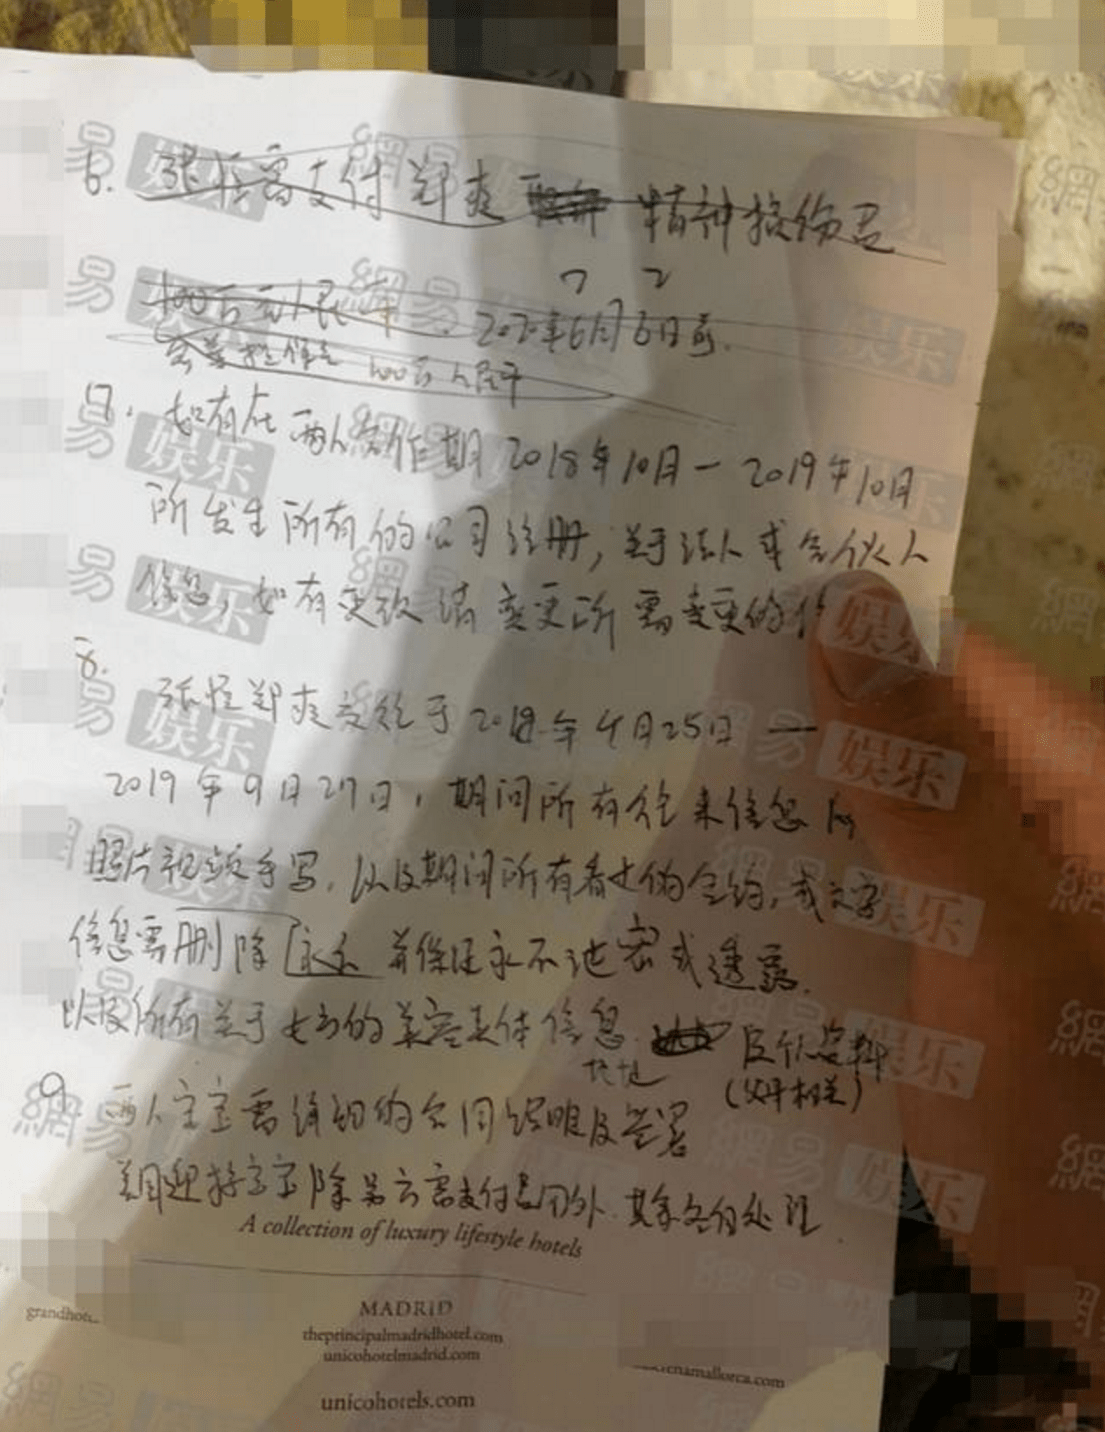 6. 张恒需支付郑爽 精神损伤君
7 2
100万元人民币 . 2020年6月6日前.
100万人民币
7. 如有在两人合作期 2018年10月一2019年10月
所发生所有的公司注册, 关于法人或合伙人
信息, 如有更改请变更所需变更的
8.
张恒郑爽交往于2018年4月25日 —
2019年9月27日, 期间所有往来信息
照片视频手写, 以及期间所有 合约, 或文字
信息需删除 永久 并保证永不泄密或透露.
以及所有关于女方的美容具体信息. 地址 (父母相关)
9. 两人宝宝需详细的合同说明及签署
美国迎接宝宝除男方需支付费用外. 其余各自处理.
A collection of luxury lifestyle hotels
MADRID
theprincipalmadridhotel.com
unicohotelmadrid.com
unicohotels.com
網易娱乐